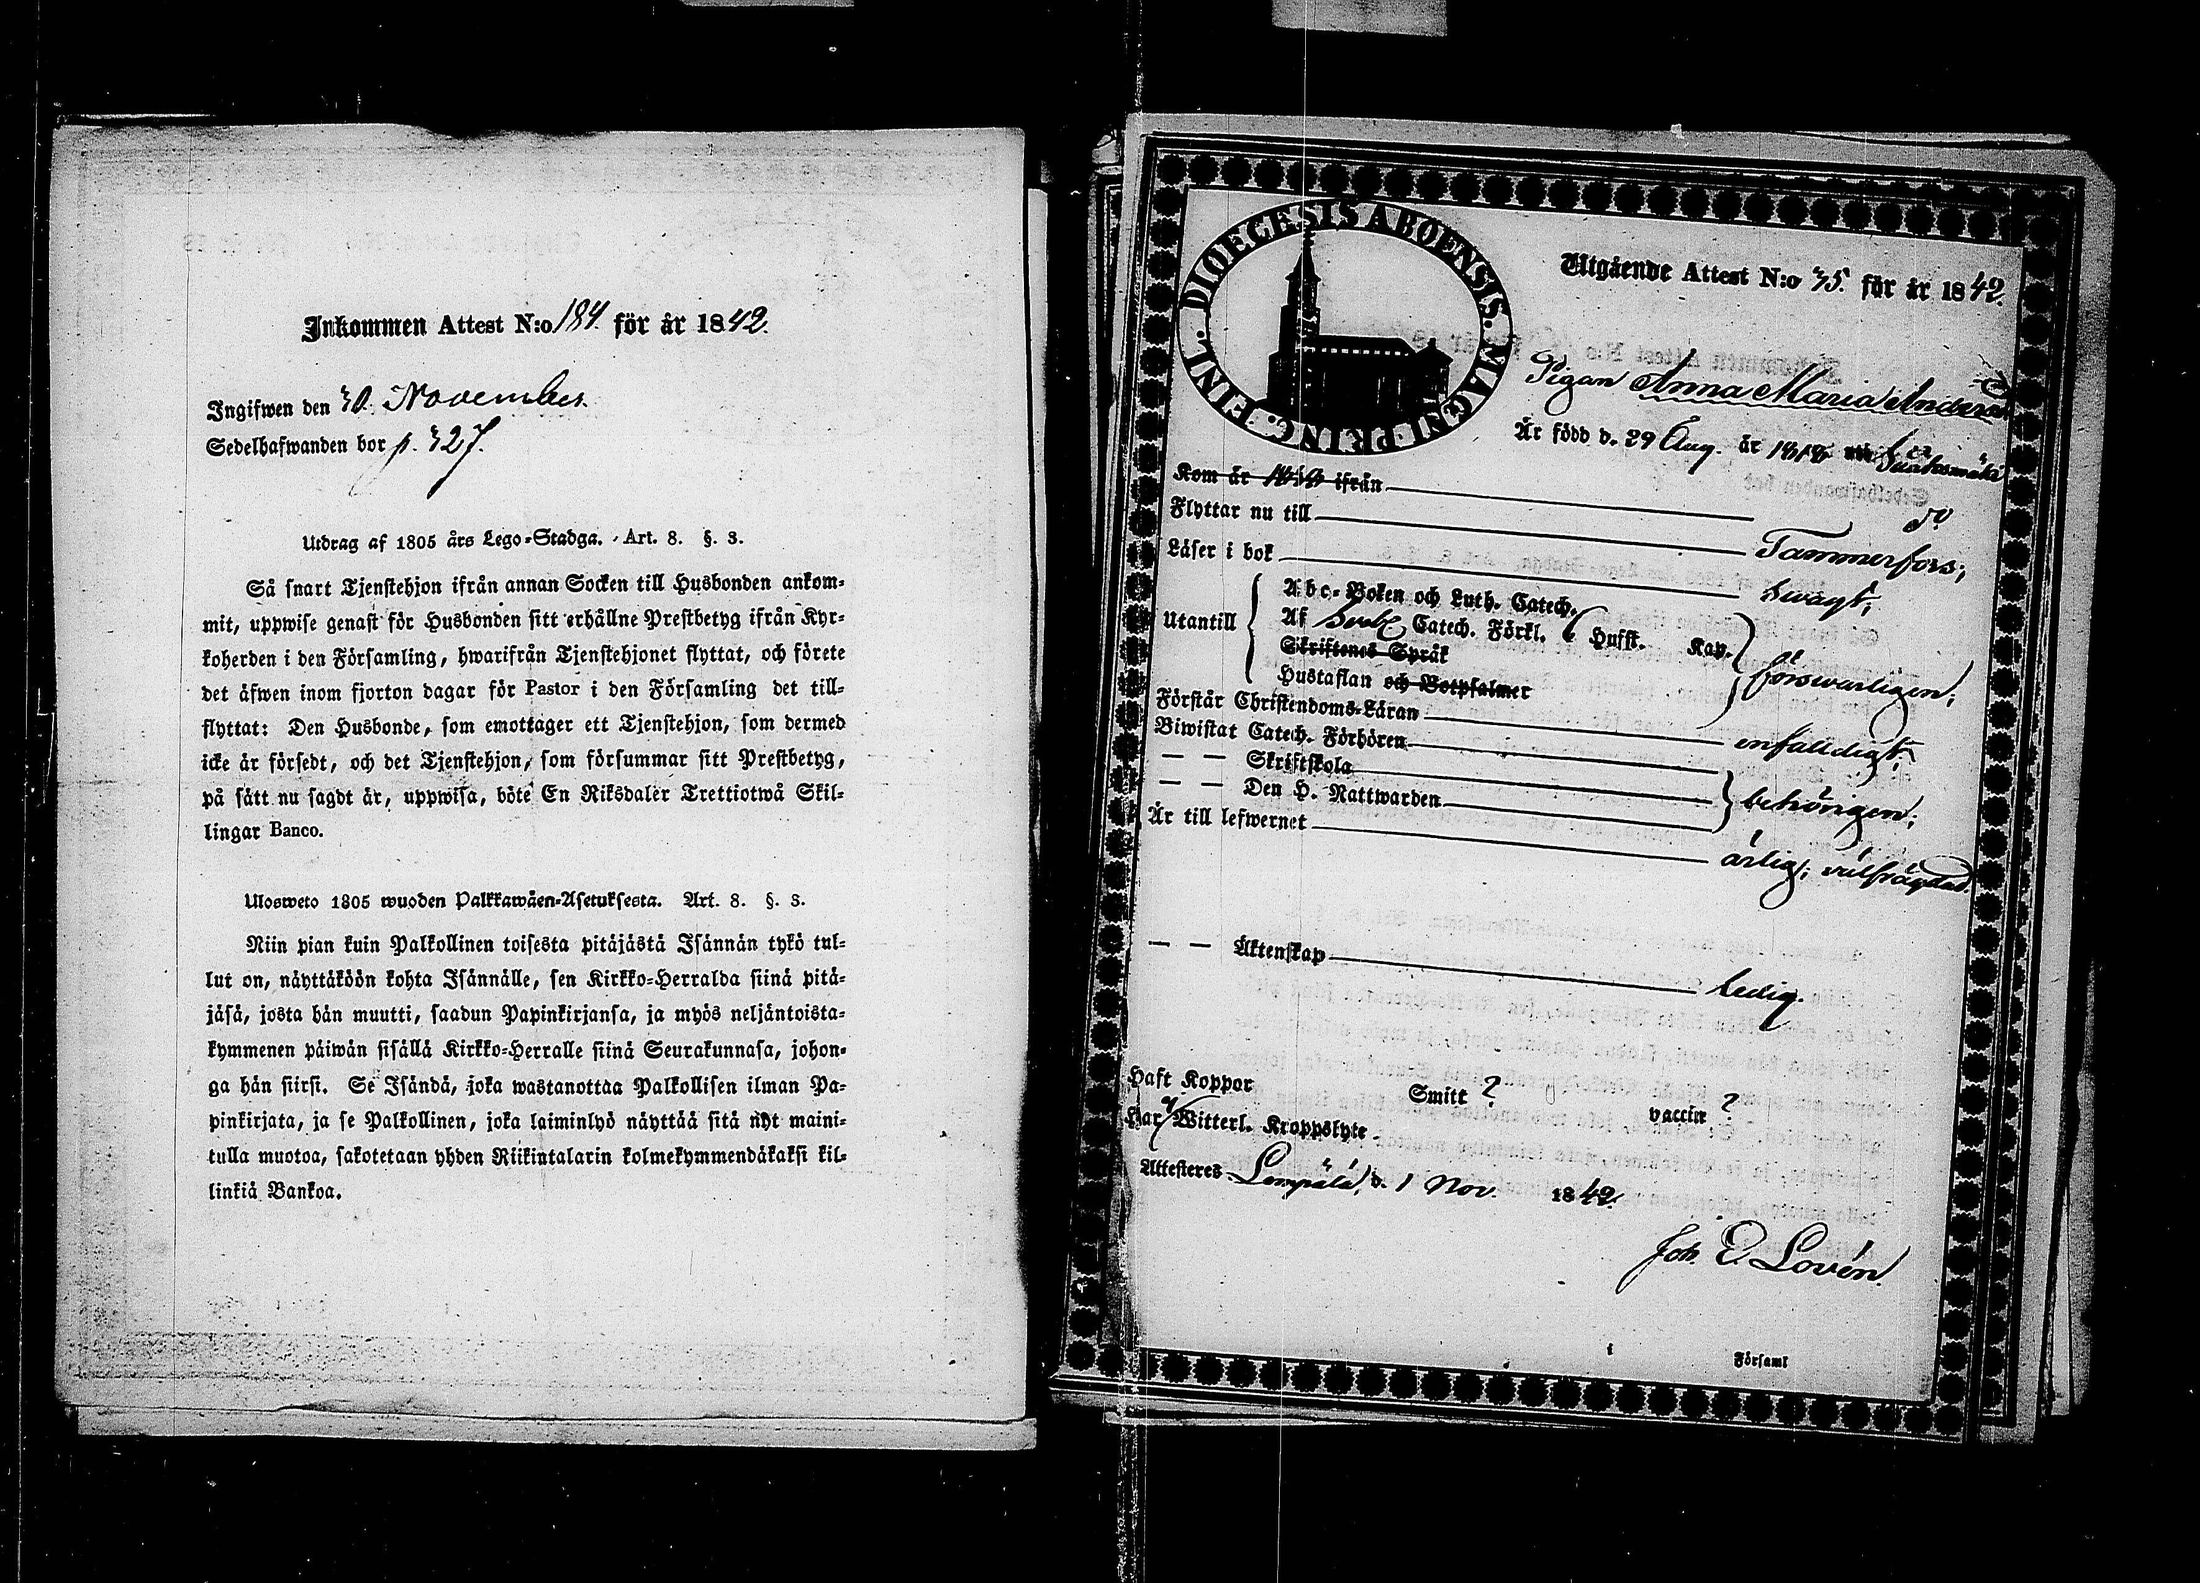 Inkommen Attest N:o 184. för år 1842.
Ingifwen den 30. November.
Sedelhafwanden bor p. 327.
Utdrag af 1805 års Lego-Stadga. Art. 8. §. 3.
Så snart Tjenstehjon ifrån annan Socken till Husbonden ankom-
mit, uppwise genast för Husbonden sitt erhållne Prestbetyg ifrån Kyr-
koherden i den Församling, hwarifrån Tjenstehjonet flyttat, och förete
det äfwen inom fjorton dagar för Pastor i den Församling det till-
flyttat: Den Husbonde, som emottager ett Tjenstehjon, som dermed
icke är försedt, och det Tjenstehjon, som försummar sitt Prestbetyg,
på sätt nu sagdt är, uppwisa, böte En Riksdaler Trettiotwå Skil-
lingar Banco.
Ulosweto 1805 wuoden Palkkawäen-Asetuksesta. Art. 8. §. 3.
Niin pian kuin Palkollinen toisesta pitäjästä Isännän tykö tul-
lut on, näyttäköön kohta Isännälle, sen Kirkko-Herralda siinä pitä-
jäsä, josta hän muutti, saadun Papinkirjansa, ja myös neljäntoista-
kymmenen päiwän sisällä Kirkko-Herralle siinä Seurakunnasa, johon-
ga hän siirsi. Se Isändä, joka wastanottaa Palkollisen ilman Pa-
pinkirjata, ja se Palkollinen, joka laiminlyö näyttää sitä nyt maini-
tulla muotoa, sakotetaan yhden Riikintalarin kolmekymmendäkaksi kil-
linkiä Bankoa.
DIOECESIS ABOENSIS. MAGNI PRINC. FINL.
Utgående Attest N:o 35. för år 1842.
Pigan Anna Maria Anders
Är född d. 29 Aug. år 1818
Kom år 18 ifrån
Flyttar nu till Tammerfors;
Läser i bok swagt;
Utantill
Abc-Boken och Luth. Catech.
Af Sveb. Catech. Förkl. Hufst. Kap.
Skriftenes Språk
Hustaflan och Botpsalmer
försvarligen;
Förstår Christendoms-Läran enfaldigt;
Biwistat Catech. Förhören
— — Skriftskola
— — Den H. Nattwarden
behörigen;
Är till lefwernet ärlig; välfrägdad.
— — Äktenskap ledig.
Haft Koppor Smitt ? vaccin ?
Har Witterl. Kroppslyte
Attesteres Lempälä, d. 1 Nov. 1842.
Joh. E. Lovén.
Församl